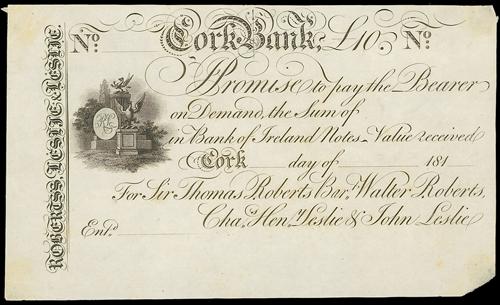 No. Cork Bank, £10. No.
Promise to pay the Bearer
on Demand, the Sum of
in Bank of Ireland Notes_Value received
Cork day of 181
For Sir Thomas Roberts Bart. Walter Roberts,
Chas. Henry Leslie & John Leslie
Entd.
ROBERTS'S, LESLIE & LESLIE